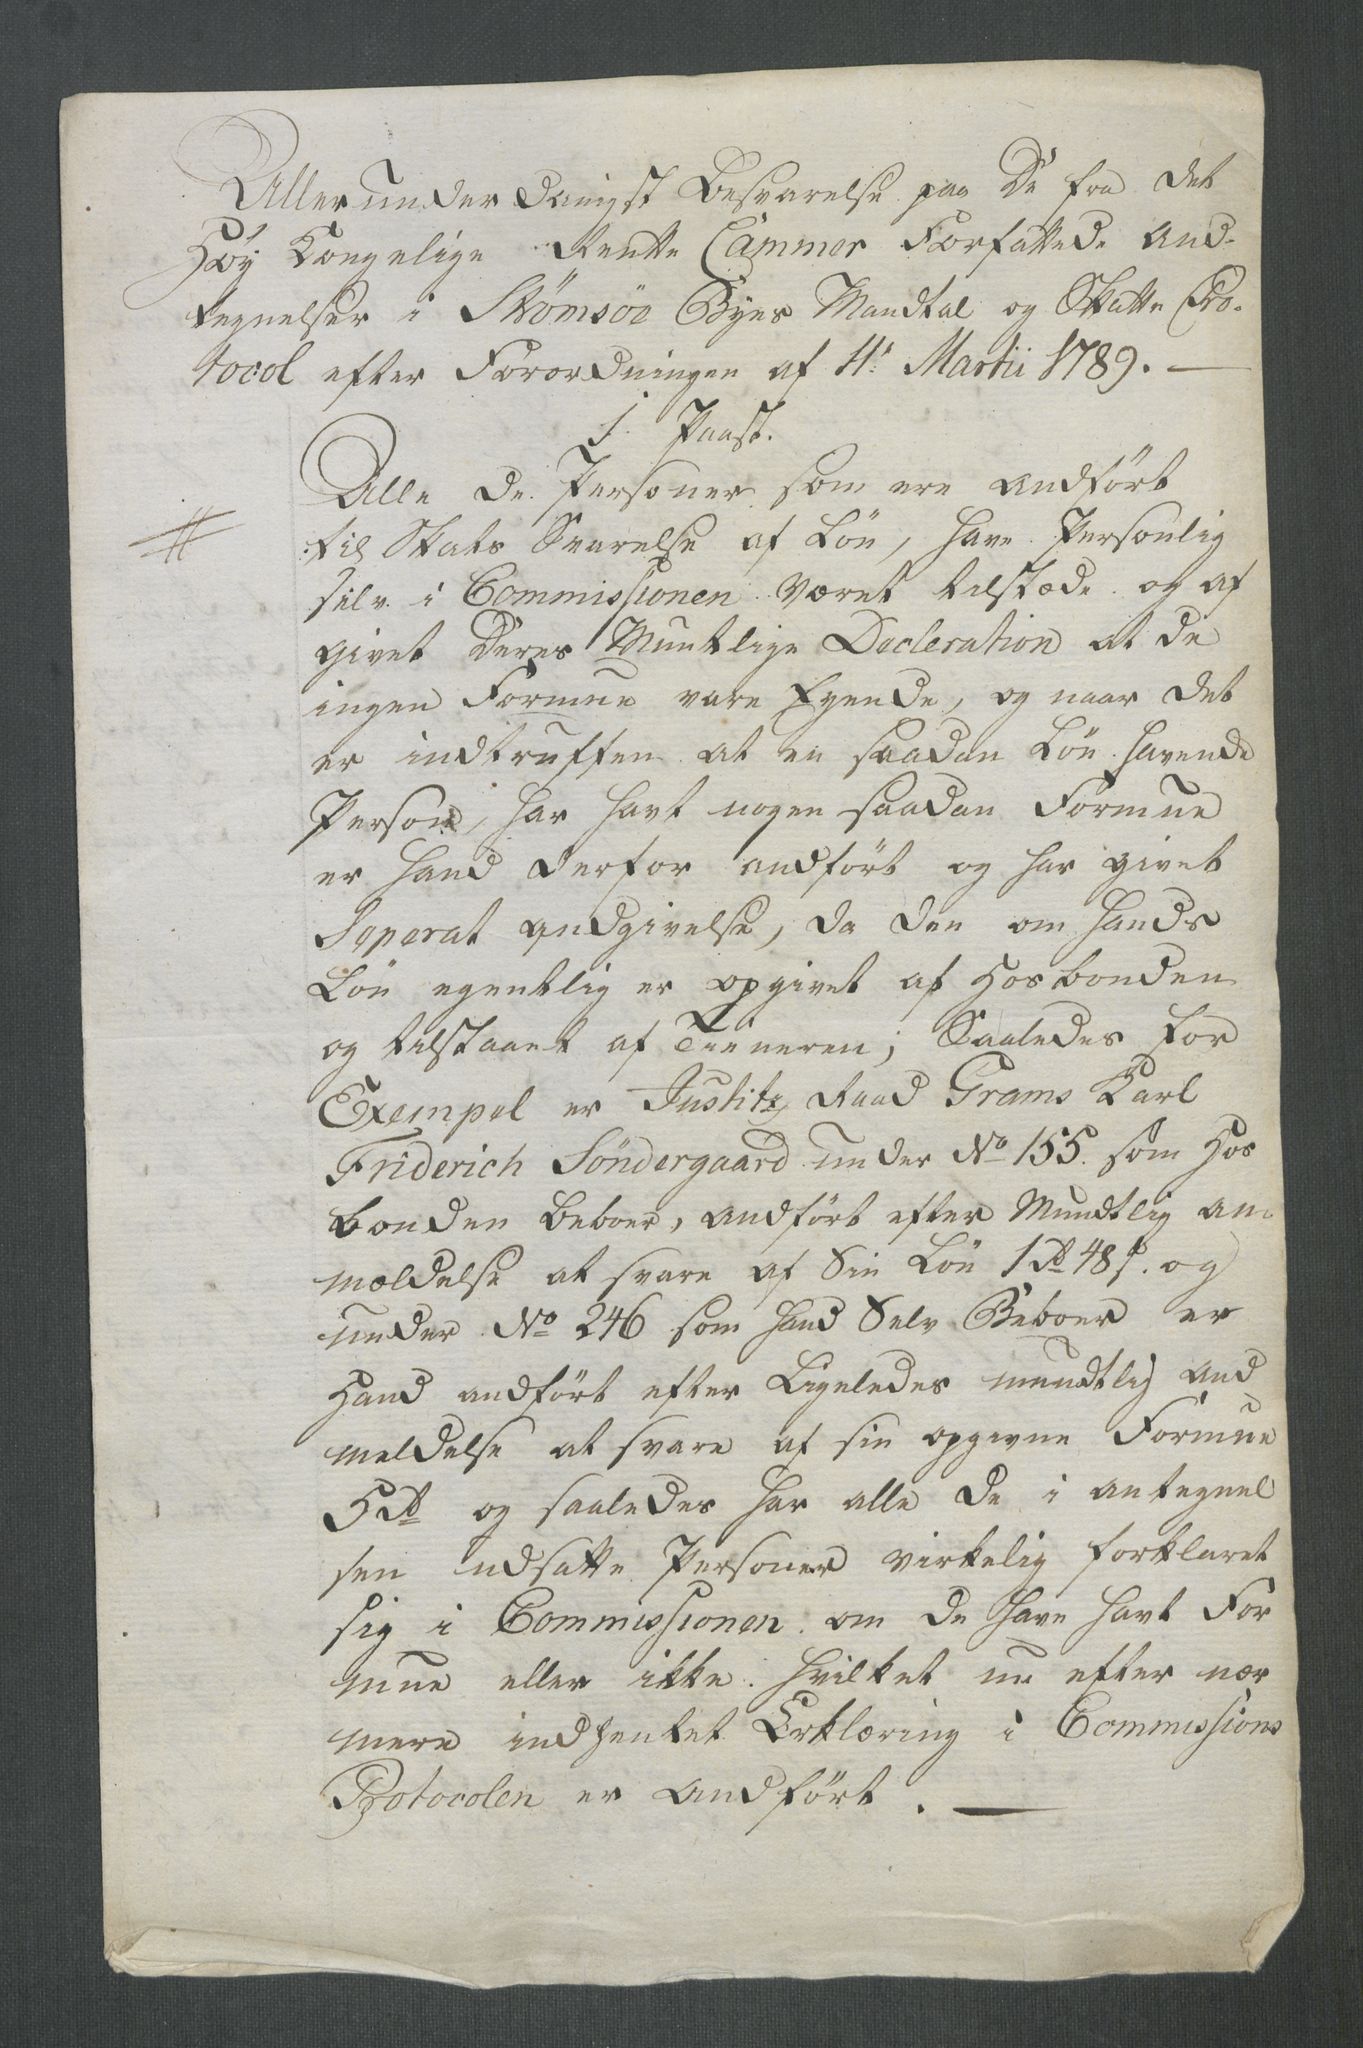 Allerunderdanigst Besvarelse paa De fra det
Höy Kongelige Rentte Cammer Forfattede And-
tegnelser i Strømsöe Byes Mandtal og Skatte Pro-
tocol efter Forordningen af 11te Martii 1789. —
1. Paast.
Alle de Personer som ere andfört
til Skats Svarelse af Lön, have Personlig
selv i Commissionen været tilstæde og af
givet Deres Muntlige Decleration at de
ingen Formue vare Eyende, og naar det
er indtruffen at en saadan Lön havende
Person, har havt nogen saadan Formue
er hand derfor andfört og har givet
Seperat andgivelse, da den om hands
Lön egentlig er opgivet af Hosbonden
og tilstaaet af Tieneren; Saaledes for
Exempel er Justitz Raad Grams Karl
Friderich Söndergaard under No 155. som Hos
bonden Beboer, andfört efter Mundtlig an
mældelse at svare af Sin Lön 1 rd 48 s. og
under No 246 som hand Selv Beboer er
Hand andfört efter Ligeledes mundtlig and
meldelse at svare af sin opgivne Formue
5 rd og saaledes har alle de i antegnel
sen udsatte Personer virkelig forklaret
sig i Commissionen om de have havt For
mue eller ikke. hvilket nu efter nær
mere indhentet Erklæring i Commissions
Protocolen er andfört. —